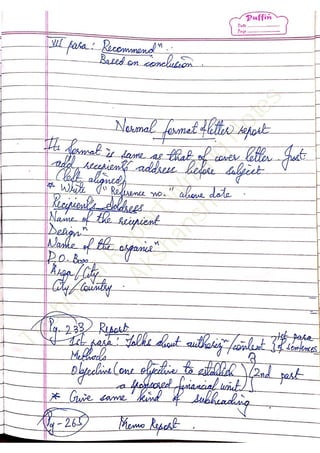 Puffin
Date
Page
VII para: Recommendⁿ.
Based on conclusion.
Normal format of letter report
Its format is same as that of cover letter. Just
add recipient's address before subject
(left aligned)
* Write "Reference no." above date.
Recipient's address
Name of the recipient
Designⁿ
Name of the organisⁿ
P.O. Box
Area/City
City/Country
Pg-233 Report
1st para: Talks about authorizⁿ/context } 1st para
Methods } 2 sentences
Objective (one objective to establish } 2nd part
a sponsored financial unit)
* Give same kind of subheading
Pg-265 Memo Report.